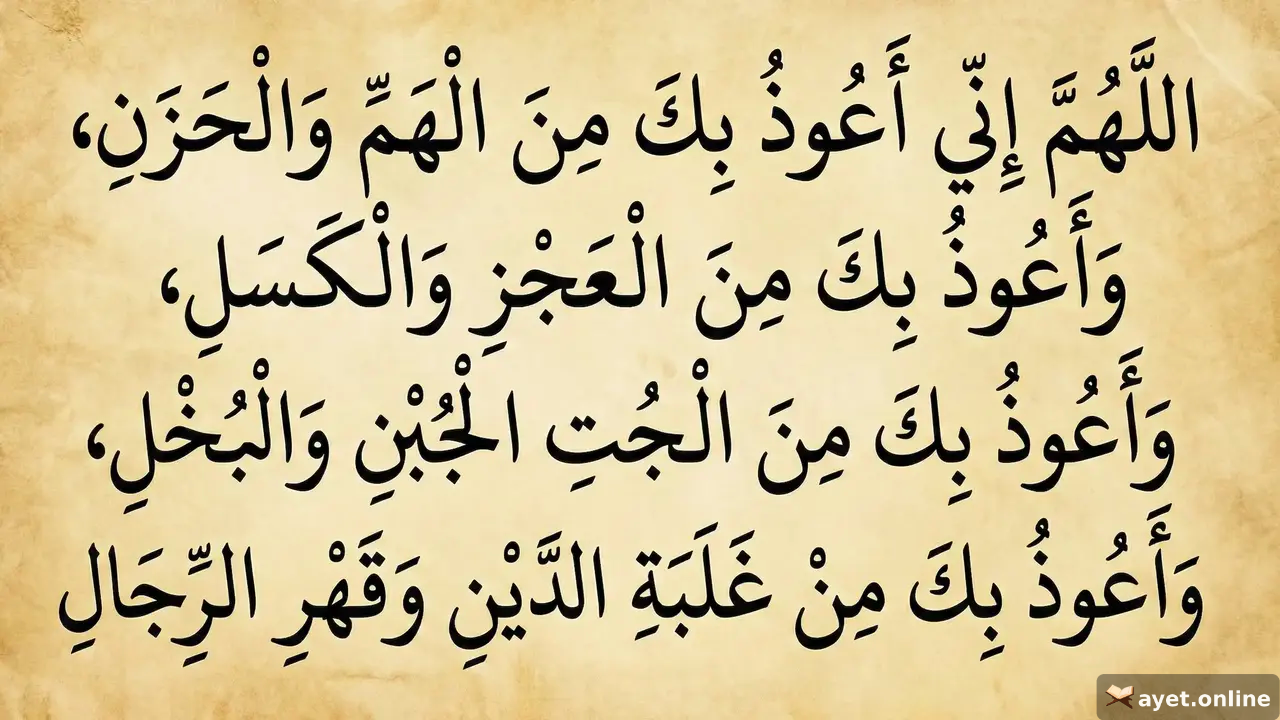 اللَّهُمَّ إِنِّي أَعُوذُ بِكَ مِنَ الْهَمِّ وَالْحَزَنِ،
وَأَعُوذُ بِكَ مِنَ الْعَجْزِ وَالْكَسَلِ،
وَأَعُوذُ بِكَ مِنَ الْجُتِ الْجُبْنِ وَالْبُخْلِ،
وَأَعُوذُ بِكَ مِنْ غَلَبَةِ الدَّيْنِ وَقَهْرِ الرِّجَالِ
ayet.online